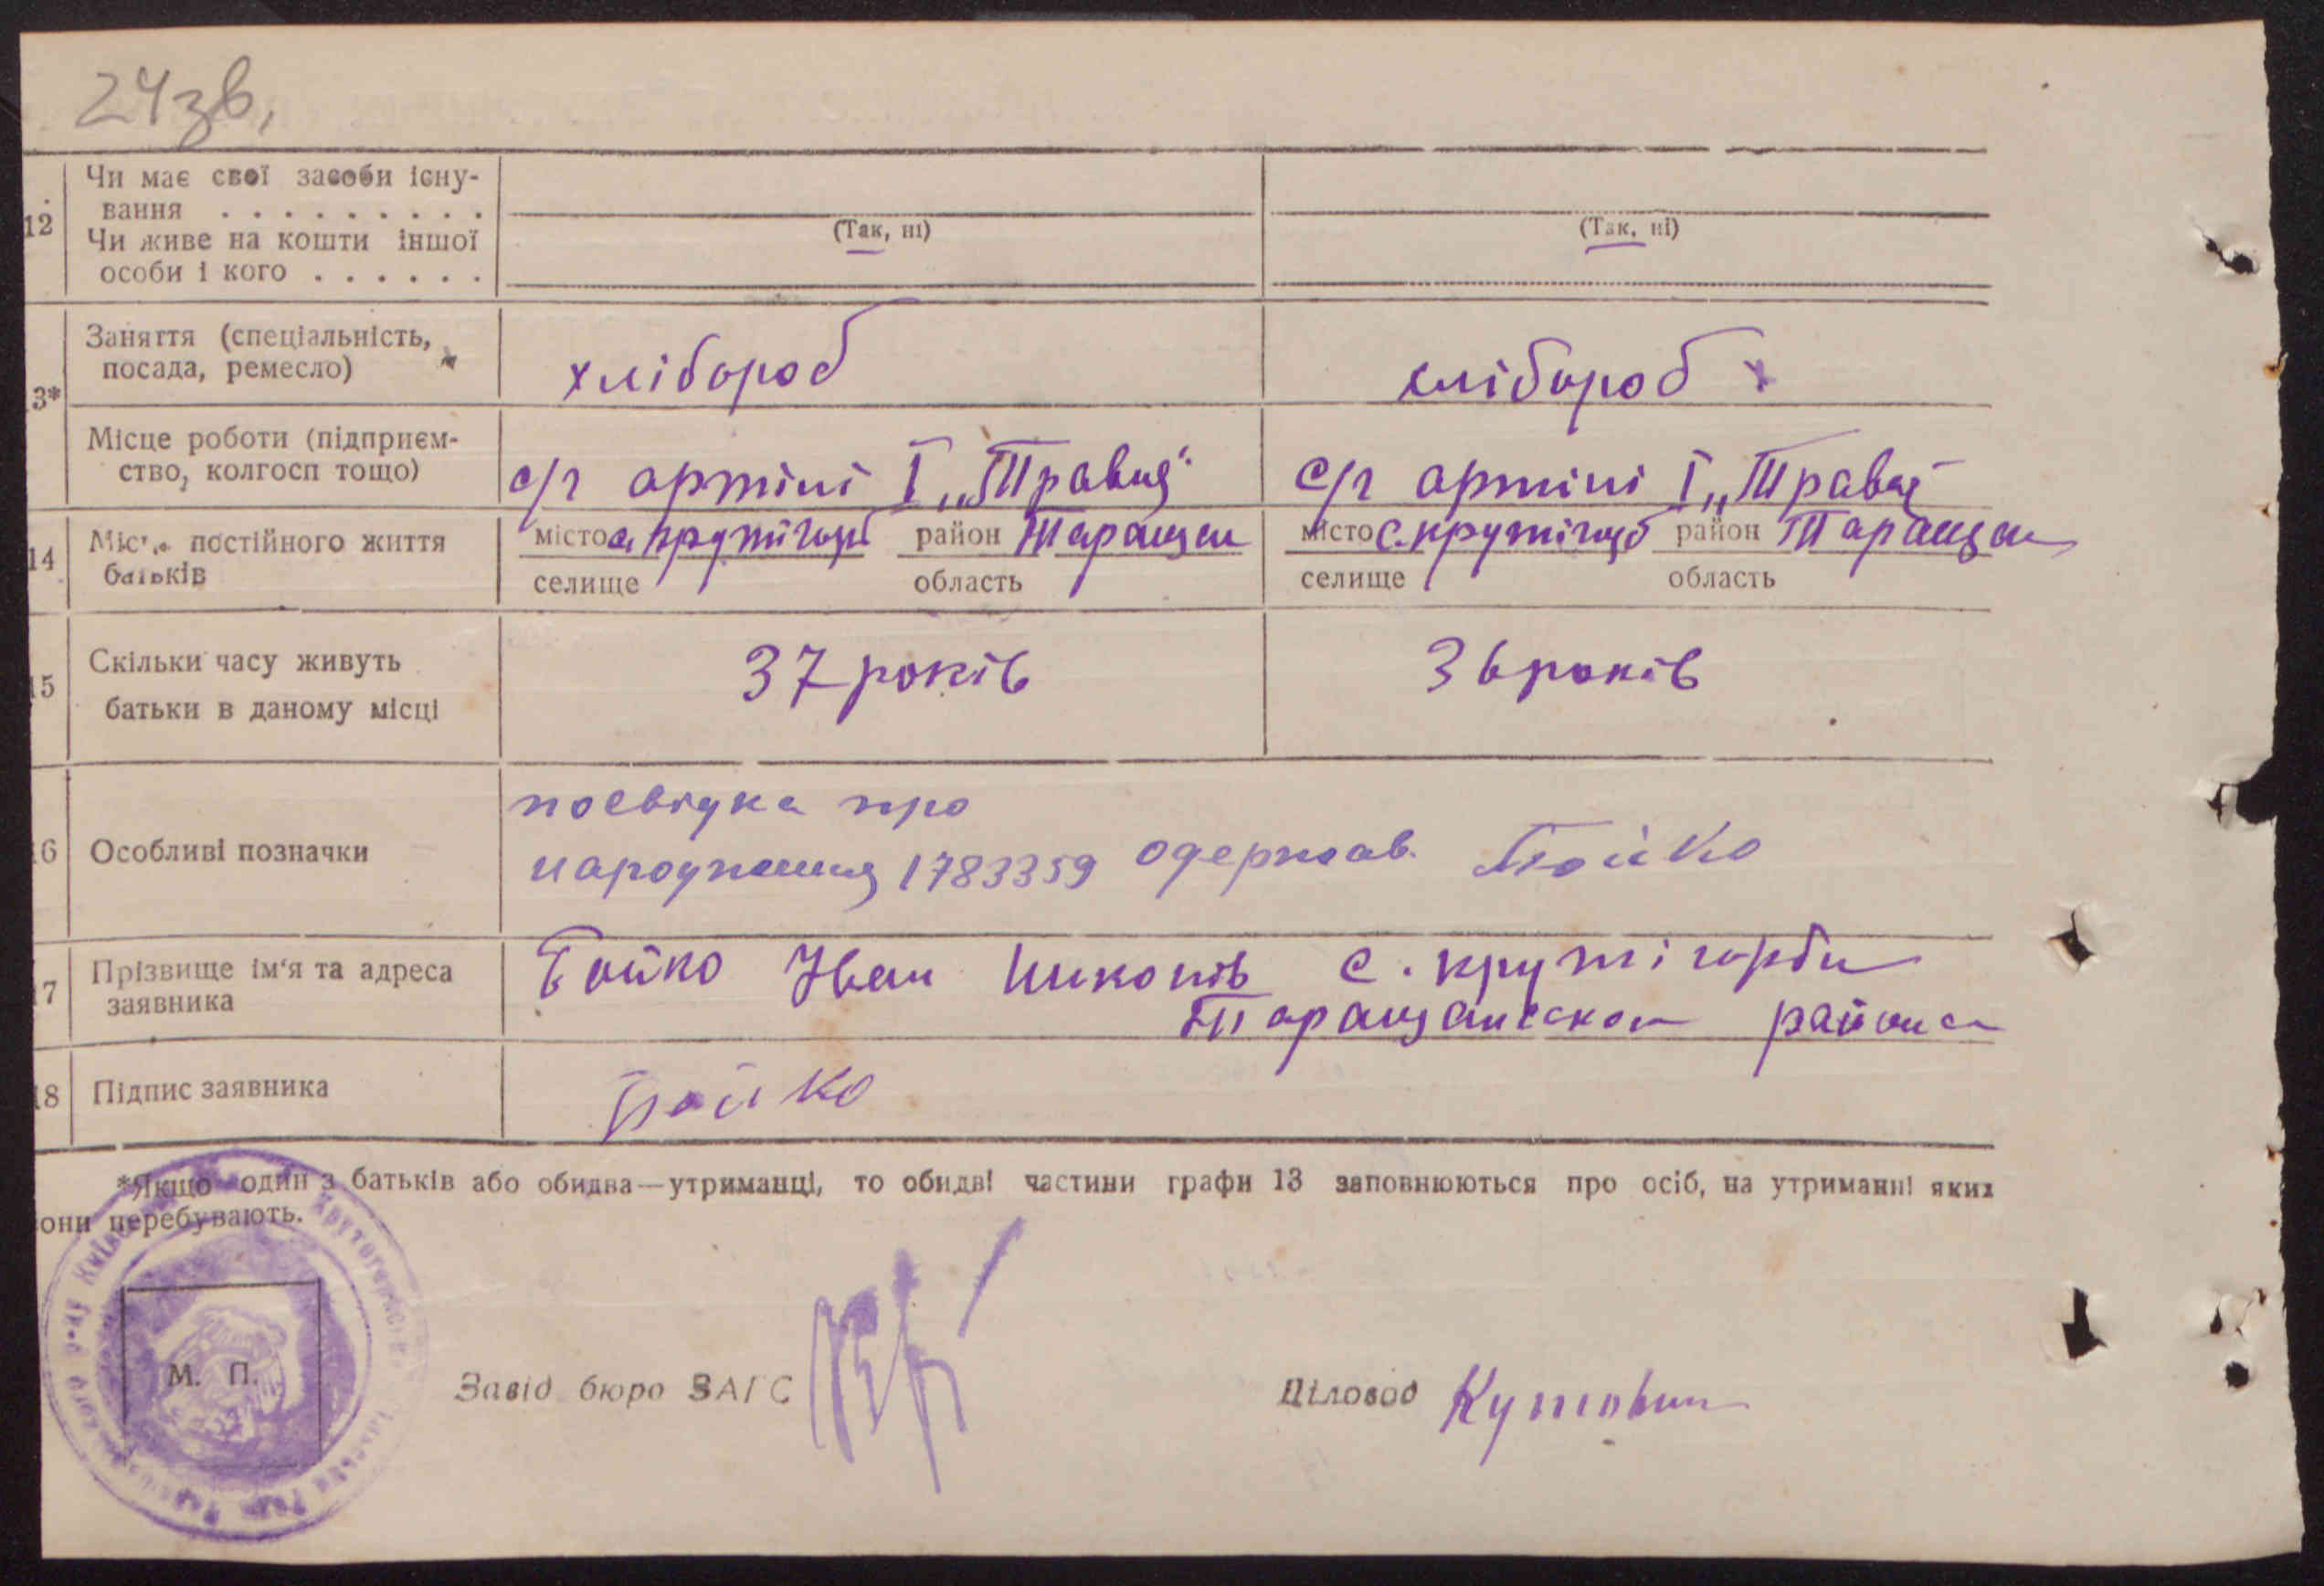 24зв.
12
Чи має свої засоби існу-
вання . . . . . . . . .
Чи живе на кошти іншої
особи і кого . . . . . .
(Так, ні)
(Так, ні)
3*
Заняття (спеціальність,
посада, ремесло)
хлібороб
хлібороб
Місце роботи (підприєм-
ство, колгосп тощо)
с/г артілі І „Травня"
с/г артілі І „Травня"
14
Місце постійного життя
батьків
місто с. крутігорб район Таращан
селище область
місто с. крутігорб район Таращан
селище область
15
Скільки часу живуть
батьки в даному місці
37 років
36 років
16
Особливі позначки
посвідка про
народження 1783359 одержав. Бойко
17
Прізвище ім'я та адреса
заявника
Бойко Іван с. крутігорби
район
18
Підпис заявника
Бойко
*Якщо один з батьків або обидва—утриманці, то обидві частини графи 13 заповнюються про осіб, на утриманні яких
вони перебувають.
М. П.
Завід бюро ЗАГС
Діловод